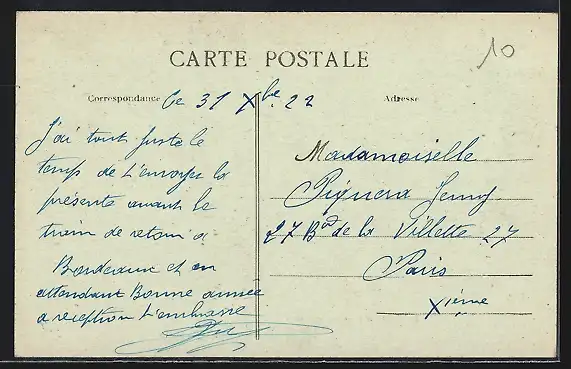 10
CARTE POSTALE
Correspondance
Le 31 Xbe. 22
J'ai tout juste le
temps de t'envoyer la
présente avant le
train de retour a
Bordeaux et en
attendant Bonne année
a reception t'embrasse
Adresse
Madamoiselle
Piquera Jenny
27 Bd de la Villette 27
Paris
Xième